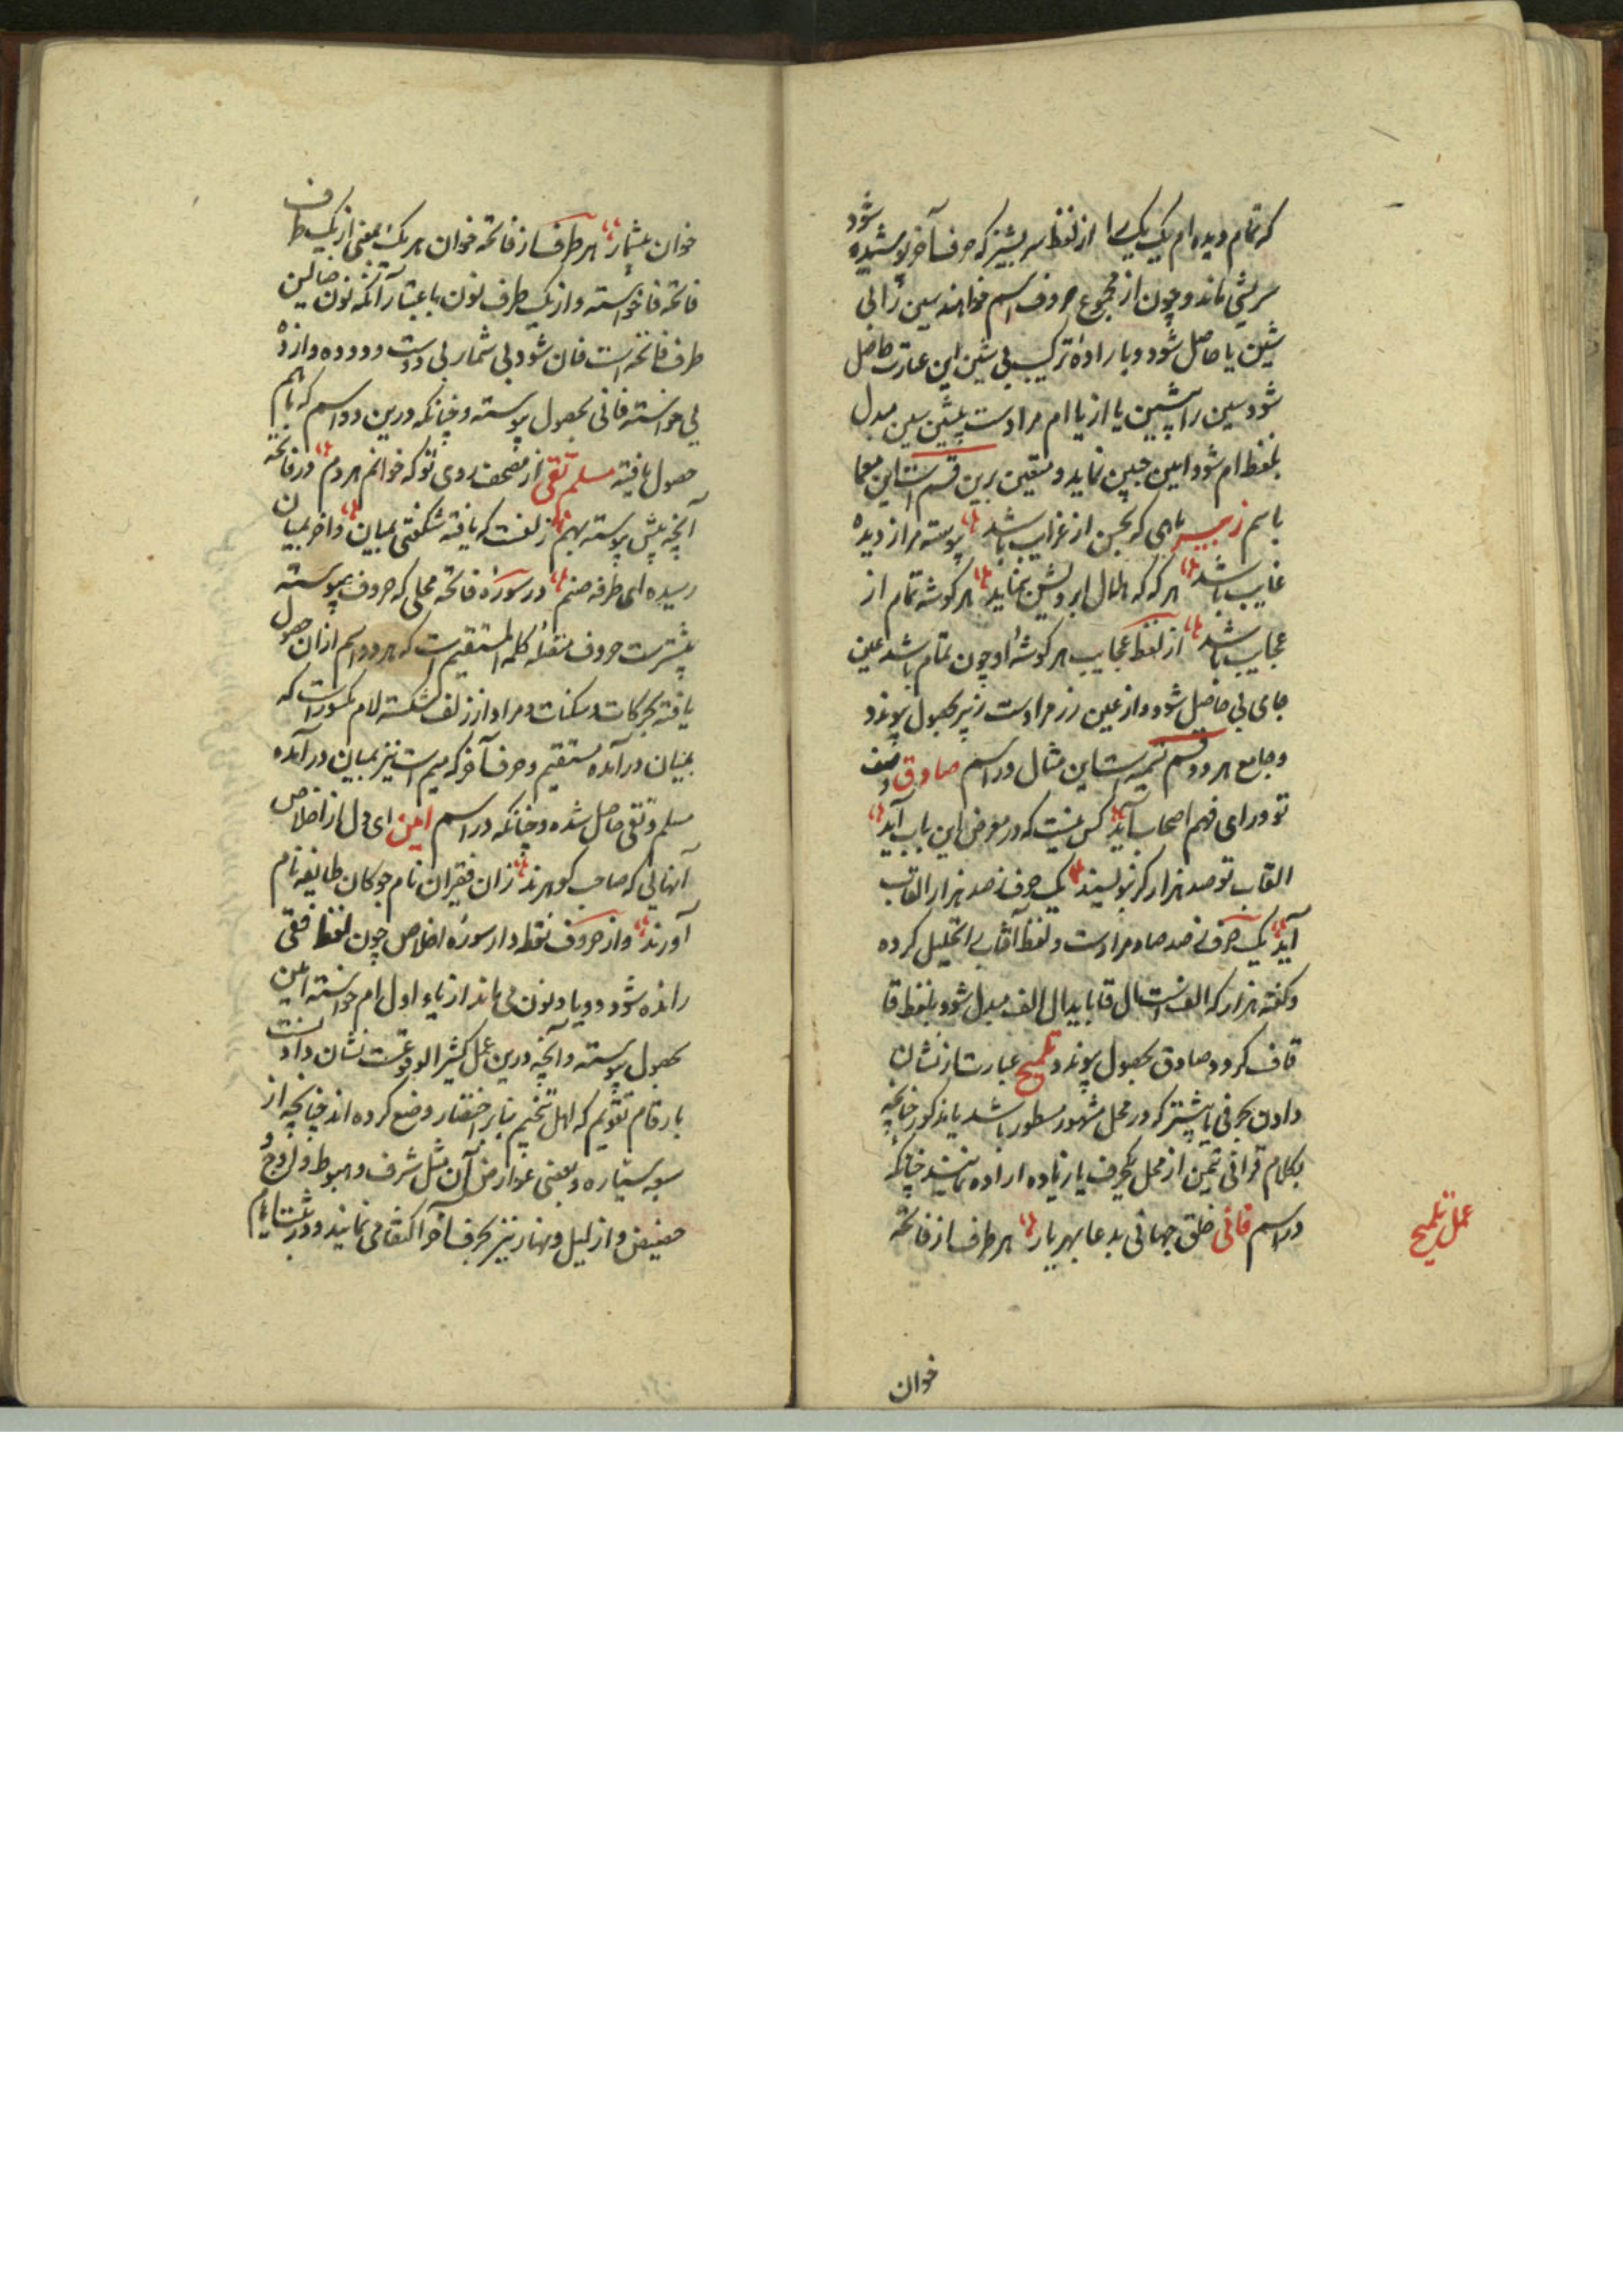 که تمام دیده ام یک یک را از لفظ سر بیشتر که حرف آخر پوشیده شود
سر بیشی ماند و چون از مجموع حروف اسم خواهند سین را بی
شین یا حاصل شود و با راده ترکیب بی شین این عبارت حاصل
شود سین را بشین یا از یا ام مرادست بشین سین مبدل
بلفظ ام شود امین جبین نماید و متعین برین قسم است این معما
باسم زبیر ماهی که بحسن از غرایب باشد پیوسته مرا ز دیده
غایب باشد هر که که هلال ابرویش بنماید هر گوشه تمام از
عجایب باشد از لفظ عجایب هر گوشه او چون تمام باشد عین
جای بی حاصل شود و از عین زر مرادست زبیر بحصول پیوندد
و جامع هر دو قسم تسمیه است این مثال در اسم صادق وصف
تو ورای فهم اصحاب آید کس نیست که در معرض این باب آید
القاب تو صد هزار گر نویسند یک حرف ز صد هزار القاب
آید یک حرف ز صد صاد مرادست و لفظ القاب را تحلیل کرده
و گفته هزار که الف است ال قا با بدال الف مبدل شود بلفظ قا
قاف گردد و صادق بحصول پیوندد تلمیح عبارتست از نشان
دادن بحرفی یا بیشتر که در محل مشهور مسطور باشد یا مذکور چنانچه
بکلام قرانی تیمن از محل یکحرف یا زیاده اراده نمایند چنانکه
در اسم فانی خلق جهانی بدعا بهر یار هر طرف از فاتحه
عمل تلمیح
خوان
خوان بیشمار هر طرف از فاتحه خوان هر یک بمعنی از یک طرف
فاتحه فا خواسته و از یک طرف نون باعتبار آنکه نون ضالین
طرف فاتحه است فان شود بی شمار بی دوست و دو ده و از ده
یی خواسته فانی بحصول پیوسته و چنانکه درین دو اسم که باهم
حصول یافته مسلم تقی از مصحف روی تو که خوانم هر دم در فاتحه
آنچه پیش پیوسته بهم زلفت که یافته شکستی بمیان و آخر بمیان
رسیده ای طرفه صنم در سوره فاتحه محلی که حروف پیوسته
بیشترست حروف منقله کلمه المستقیم است که هر دو اسم ازان حصول
یافته بحرکات و سکنات و مراد از زلف شکسته لام مکسور است که
بمیان در آمده مستقیم و حرف آخر که میم است نیز بمیان در آمده
مسلم و تقی حاصل شده و چنانکه در اسم امین ای دل از اخلاص
آنهایی که صاحب گوهرند زان فقیران نام جوکان طایفه نام
آورند و از حروف نقطه دار سوره اخلاص چون لفظ فقی
رانده شود دو یا و نون می ماند از یاء اول ام خواسته امین
بحصول پیوسته و آنچه درین عمل کثیر الوقوعست نشان دادنست
بارقام تقویم که اهل تنجیم بنابر اختصار وضع کرده اند چنانچه از
سبعه سیاره و بعضی عوارض آن مثل شرف و هبوط و اوج و
حضیض و از لیل و نهار نیز بحرف آخر اکتفا می نمایند و در شب ایام